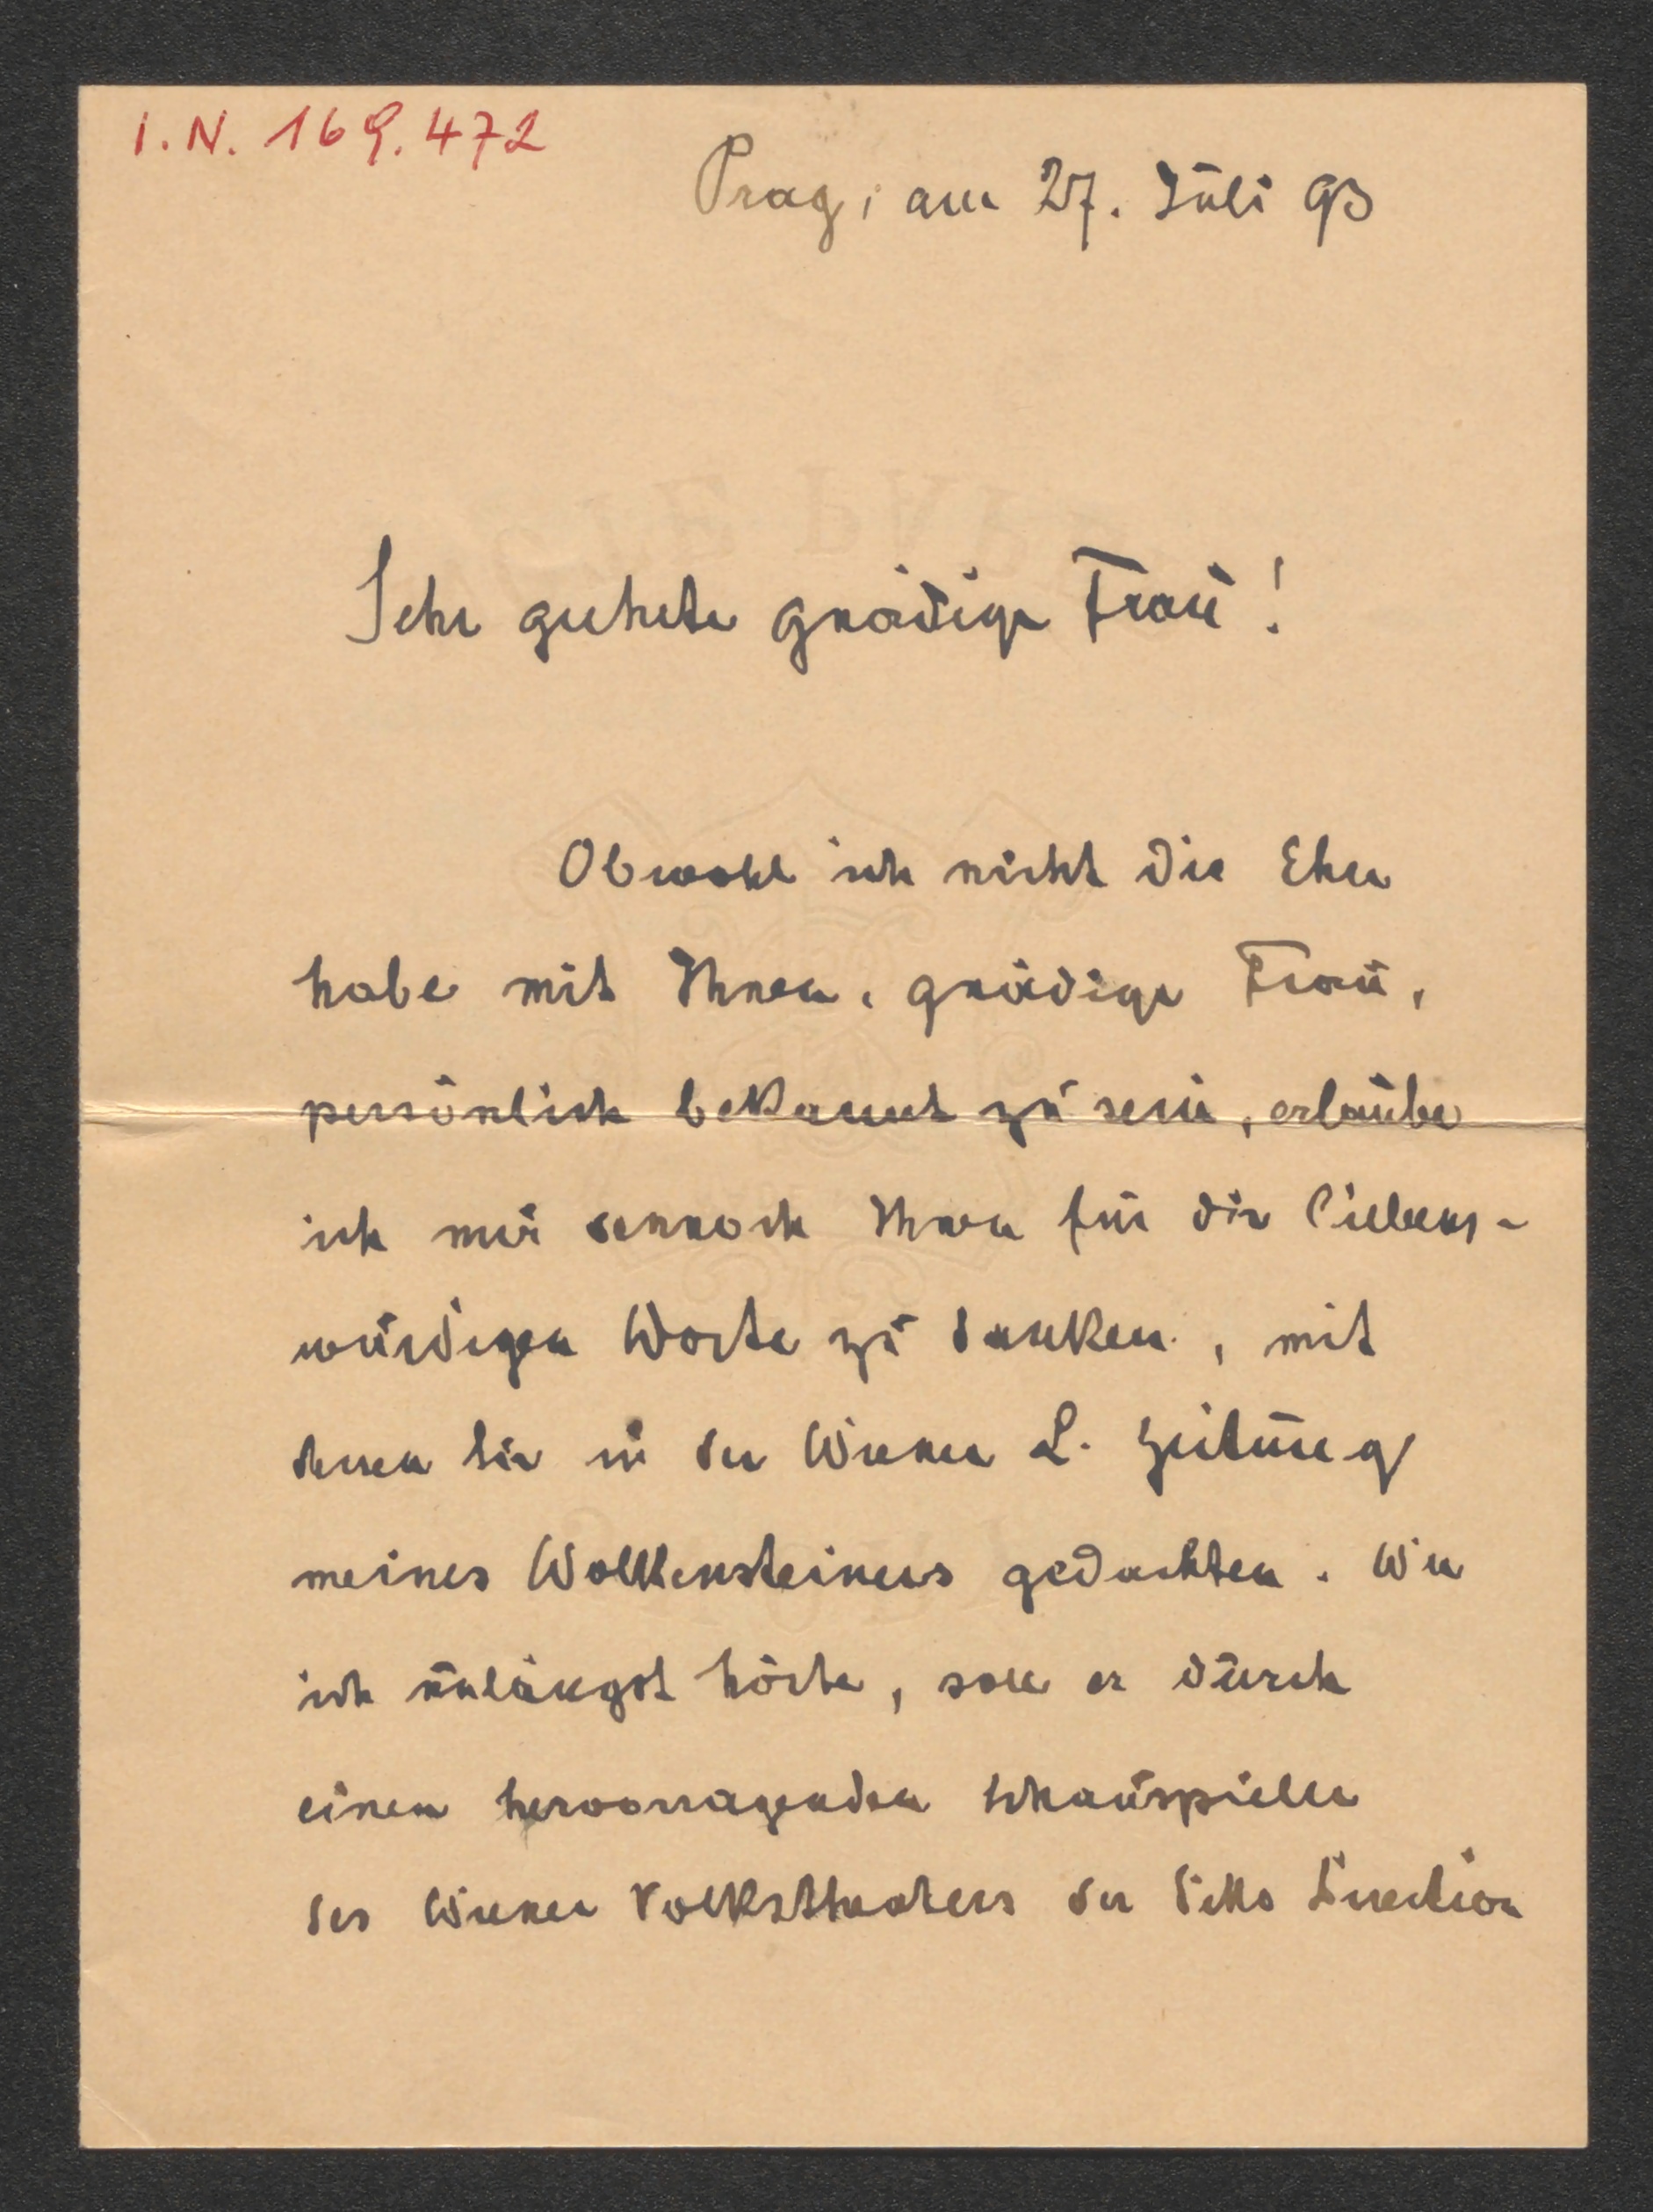 I.N. 169.472
Prag, am 27. Juli 93
Sehr geehrte gnädige Frau!
Obwohl ich nicht die Ehre
habe mit Ihnen, gnädige Frau,
persönlich bekannt zu sein, erlaube
ich mir dennoch Ihnen für die liebens-
würdigen Worte zu danken, mit
denen Sie in der Wiener L. Zeitung
meines Wolkensteiners gedachten. Wie
ich unlängst hörte, soll er durch
einen hervorragenden Schauspieler
des Wiener Volkstheaters der Direction